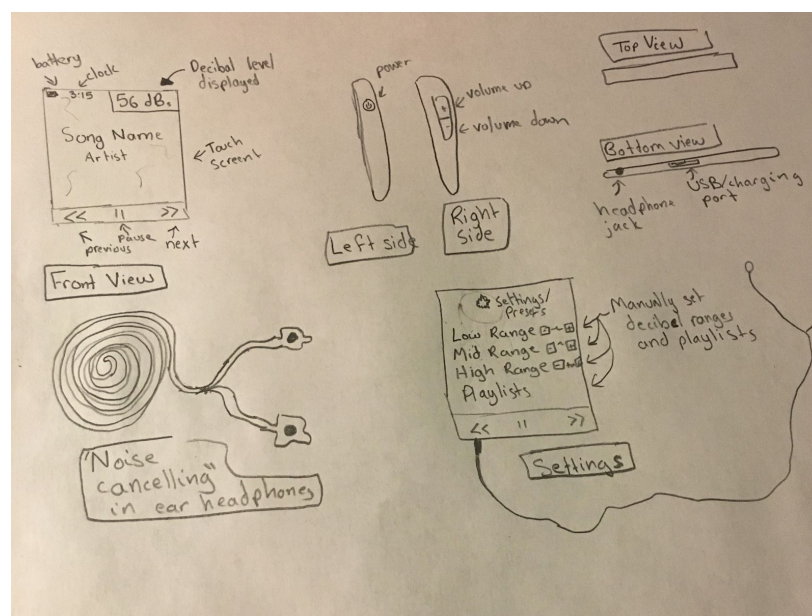 battery
clock
Decibal level
displayed
3:15
56 dBs
Song Name
Artist
Touch
screen
<< II >>
previous
pause
next
Front View
power
Left side
volume up
+
-
volume down
Right
side
Top View
Bottom view
headphone
jack
USB/charging
port
"Noise
cancelling"
in ear headphones
Settings/
Presets
Low Range - ~ +
Mid Range - ~ +
High Range - ~ +
Playlists
<< II >>
Manually set
decibel ranges
and playlists
Settings